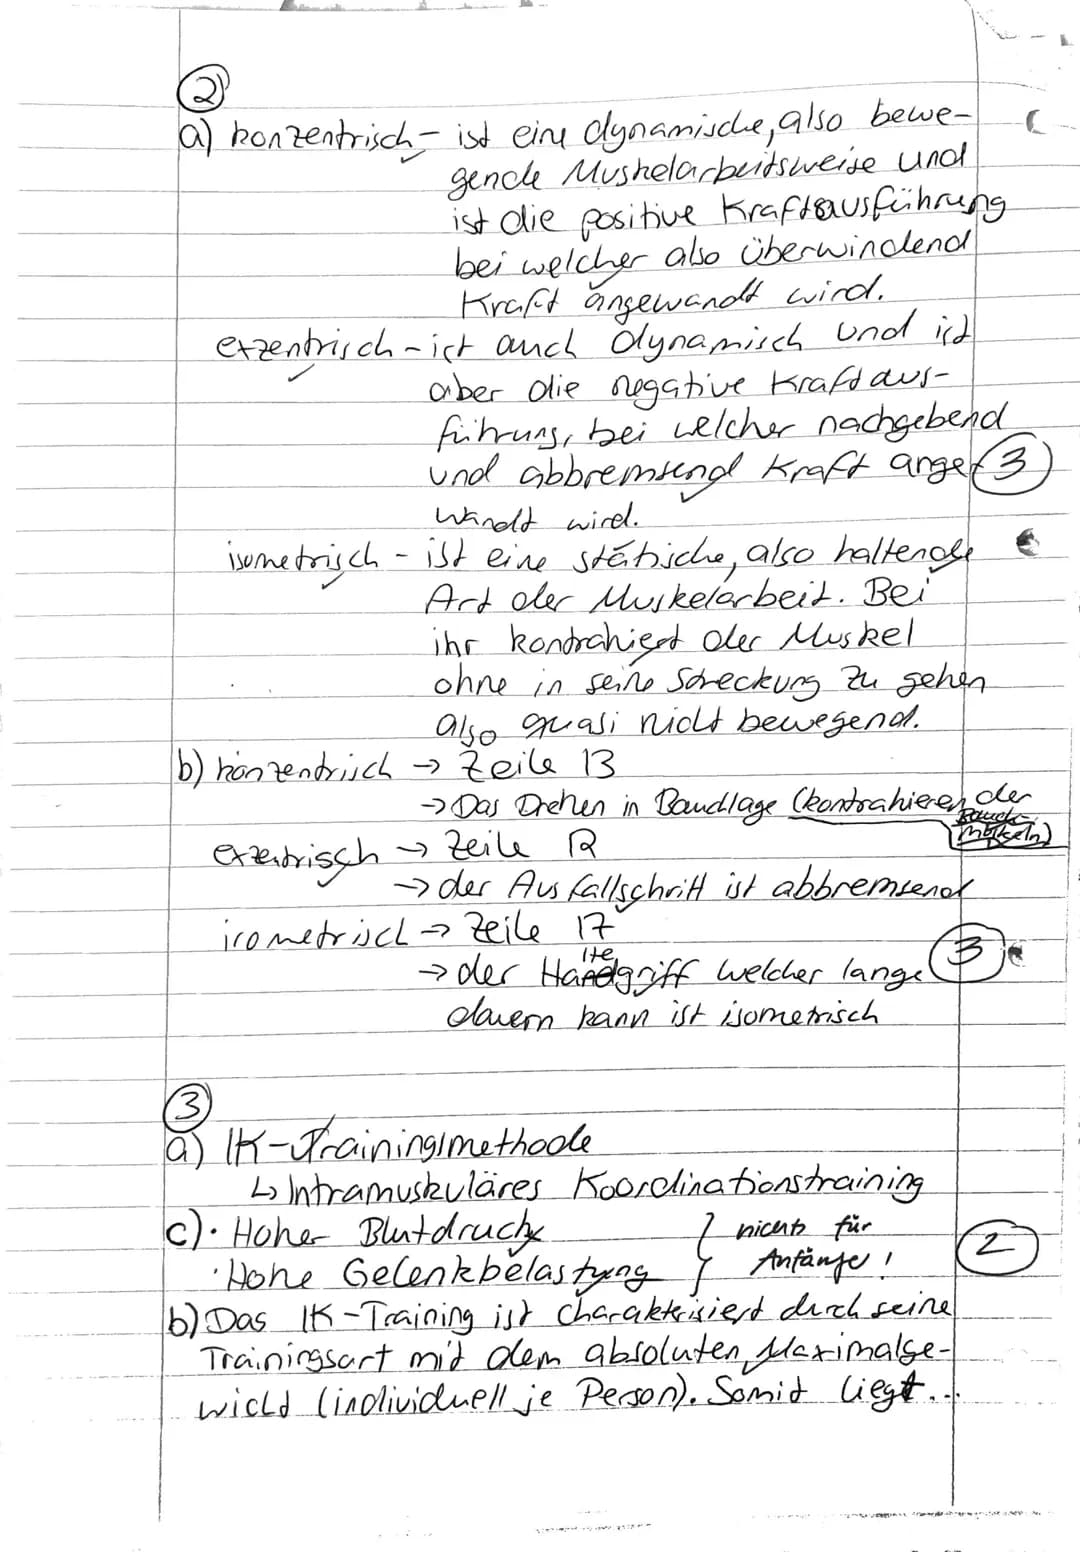 2
a) konzentrisch - ist eine dynamische, also bewe-
gende Muskelarbeitsweise und
ist die positive Kraftausführung
bei welcher also überwindend
Kraft angewandt wird.
exzentrisch - ist auch dynamisch und ist
aber die negative Kraftaus-
führung, bei welcher nachgebend
und abbremsend Kraft ange- 3
wandt wird.
isometrisch - ist eine statische, also haltende
Art der Muskelarbeit. Bei
ihr kontrahiert der Muskel
ohne in seine Streckung zu gehen
also quasi nicht bewegend.
b) konzentrisch → Zeile 13
→ Das Drehen in Bauchlage (kontrahieren der
Bauch-
muskeln)
exzentrisch → Zeile 12
→ der Ausfallschritt ist abbremsend
isometrisch → Zeile 17
→ der Haltegriff welcher lange 3
dauern kann ist isometrisch
3
a) IK-Trainingsmethode
↳ Intramuskuläres Koordinationstraining
c) · Hoher Blutdruck } nichts für
· Hohe Gelenkbelastung } Anfänger! 2
b) Das IK-Training ist charakterisiert durch seine
Trainingsart mit dem absoluten Maximalge-
wicht (individuell je Person). Somit liegt...